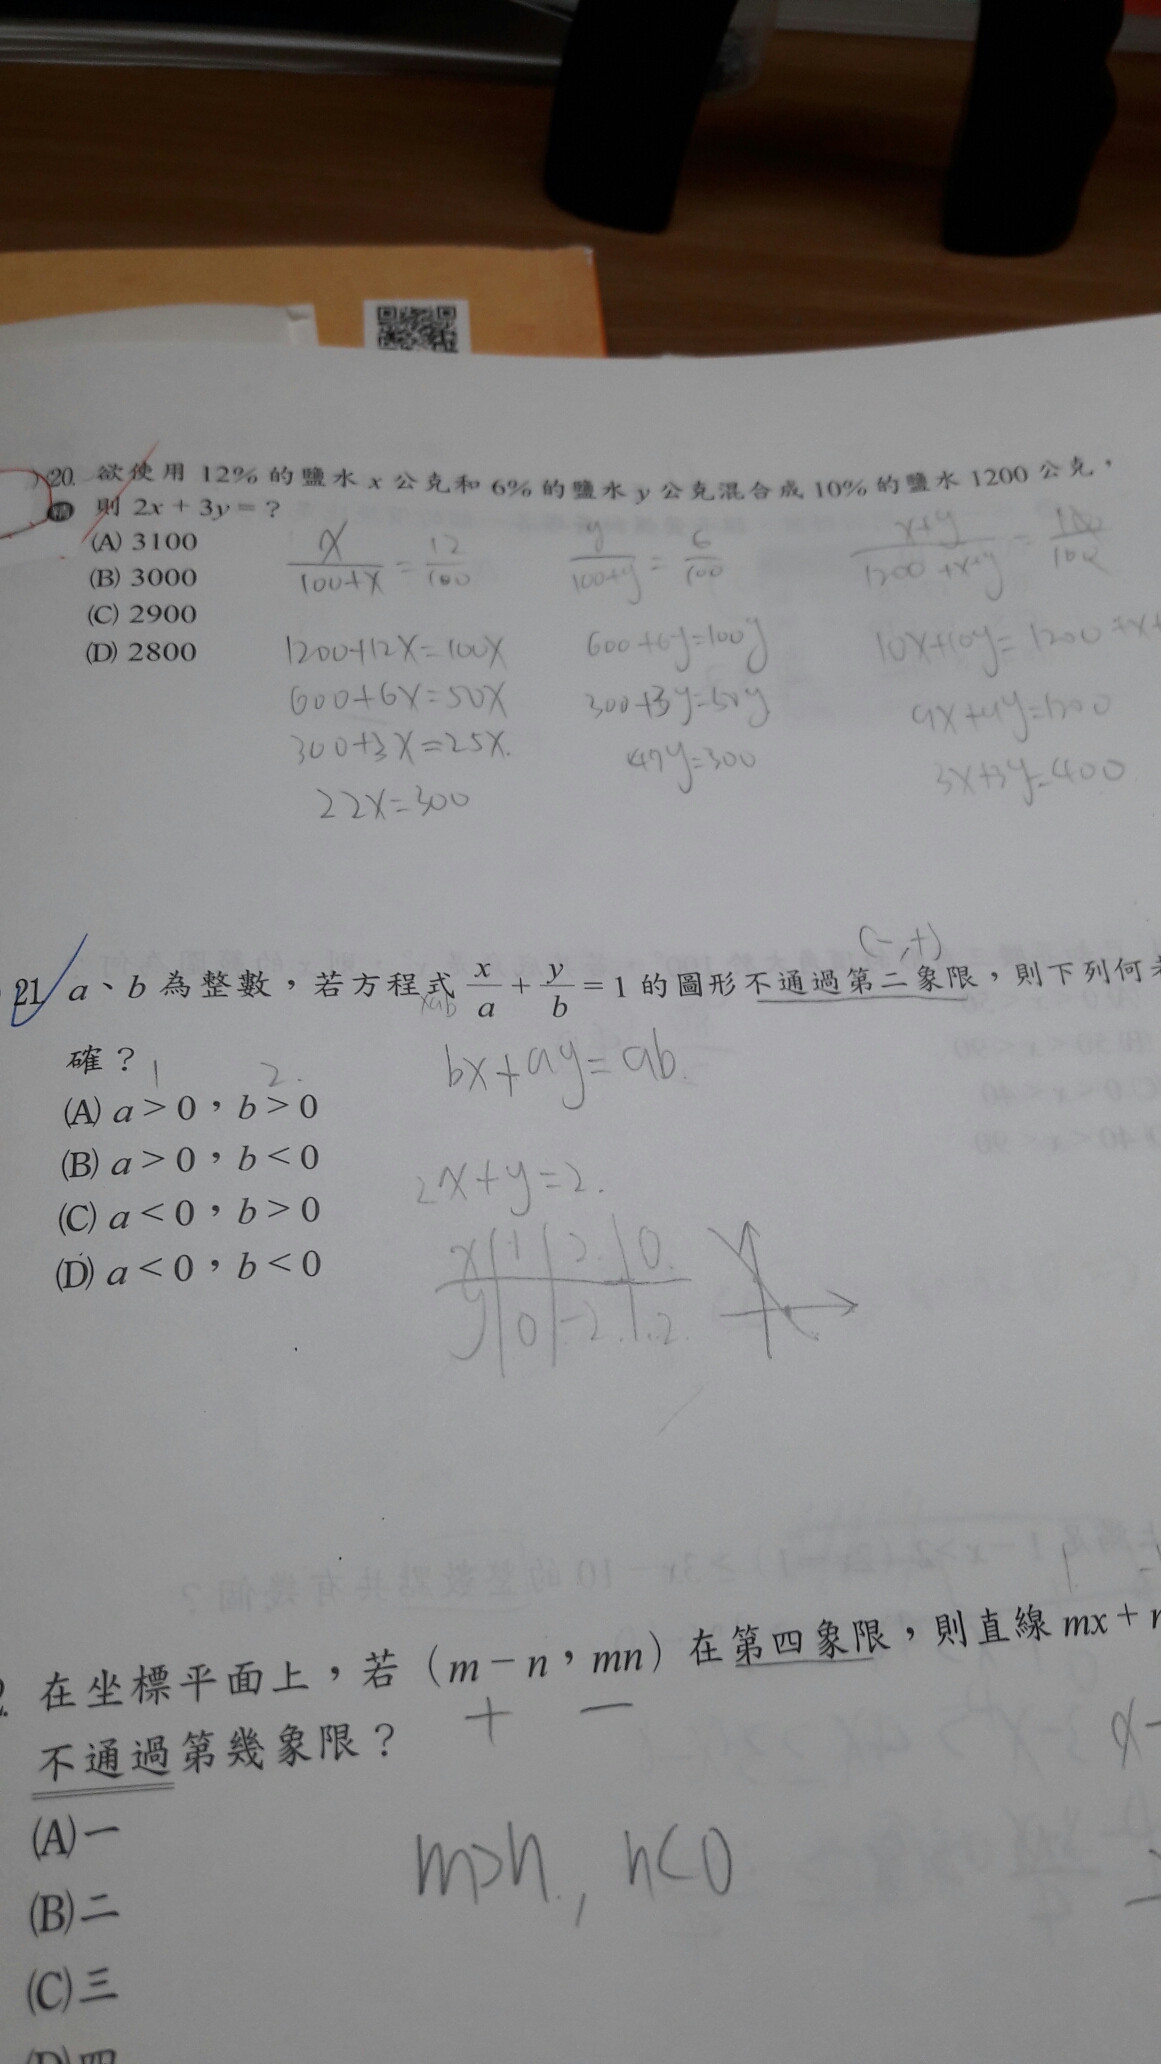 20. 欲使用 12% 的鹽水 x 公克和 6% 的鹽水 y 公克混合成 10% 的鹽水 1200 公克，
則 2x + 3y = ?
(A) 3100
(B) 3000
(C) 2900
(D) 2800
x/(100+x) = 12/100
1200+12x=100x
600+6x=50x
300+3x=25x.
22x=300
y/(100+y) = 6/100
600+6y=100y
300+3y=50y
47y=300
x+y/(1200+x+y) =
10x+10y= 1200+x+
9x+9y=1200
3x+3y=400.
(-,+)
21 a、b 為整數，若方程式 x/a + y/b = 1 的圖形不通過第二象限，則下列何
xab
確？
1 2.
(A) a > 0，b > 0
(B) a > 0，b < 0
(C) a < 0，b > 0
(D) a < 0，b < 0
bx+ay=ab.
2x+y=2.
x 1 2. 0.
y 0 -2. 2.
在坐標平面上，若（m − n，mn）在第四象限，則直線 mx +
+ −
不通過第幾象限？
(A) 一
(B) 二
(C) 三
(D) 四
m>n., n<0